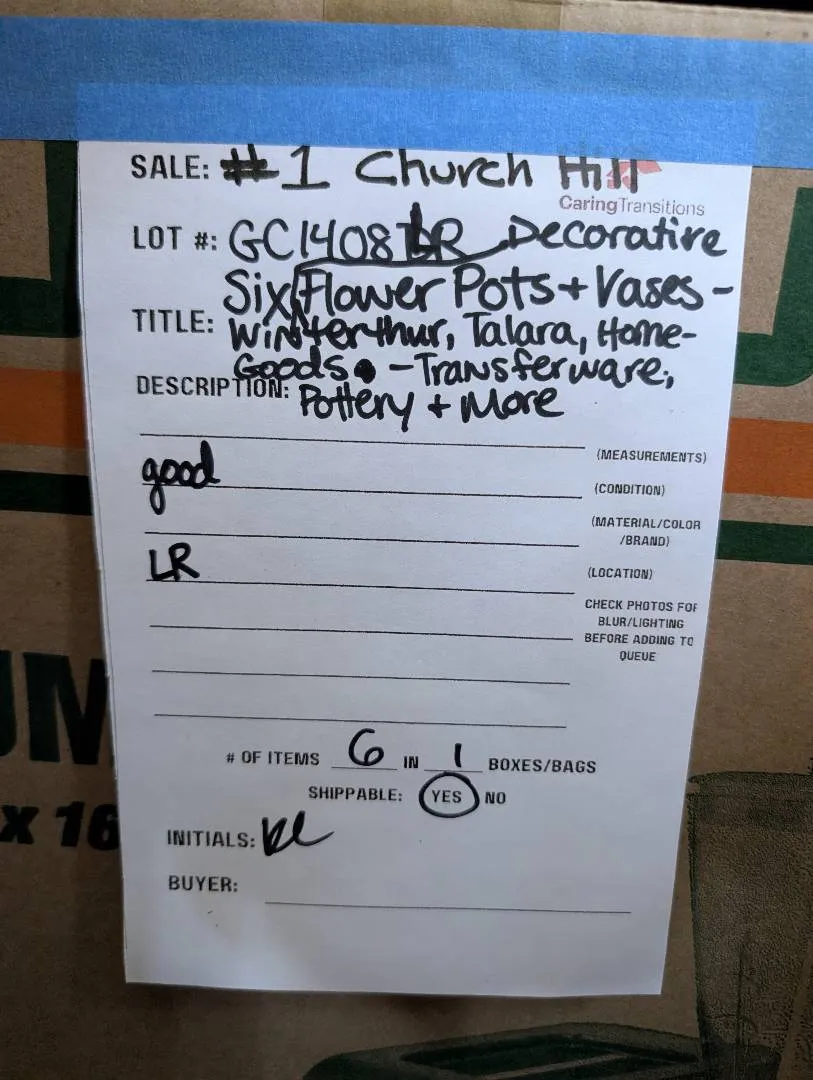 SALE: #1 Church Hill
CaringTransitions
LOT #: GC1408 LR Decorative
Six Flower Pots + Vases -
TITLE: Winterthur, Talara, Home-
Goods - Transferware,
DESCRIPTION: Pottery + More
(MEASUREMENTS)
good (CONDITION)
(MATERIAL/COLOR
/BRAND)
LR (LOCATION)
CHECK PHOTOS FOR
BLUR/LIGHTING
BEFORE ADDING TO
QUEUE
# OF ITEMS 6 IN 1 BOXES/BAGS
SHIPPABLE: YES NO
INITIALS:
BUYER:
UM
X 16